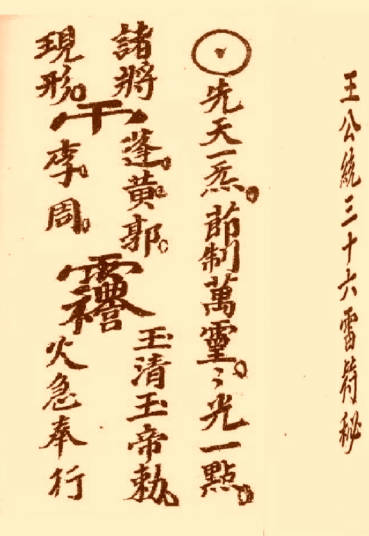 王公統三十六雷符秘
先天一炁。節制萬靈。〻光一點。
諸將
現形。
蓬。黃。郭。
李。周。
玉清玉帝勅
火急奉行